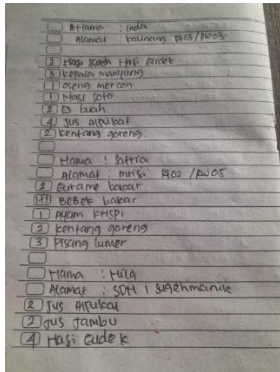 Nama : Inda
Alamat : Kalinang Rt03/Rw03
2 Nasi Gudek
3 Kepala manyung
1 oseng mercon
1 Nasi Soto
2 Es buah
4 Jus alpukat
2 Kentang goreng
Nama : Satria
Alamat : Mrisi Rt02/Rw05
2 Gurame bakar
1 Bebek bakar
1 Ayam Krispi
2 Kentang goreng
3 Piscang lumer
Nama : Mila
Alamat : SDN 1
2 Jus Alpukat
2 Jus Jambu
4 Nasi Gudek